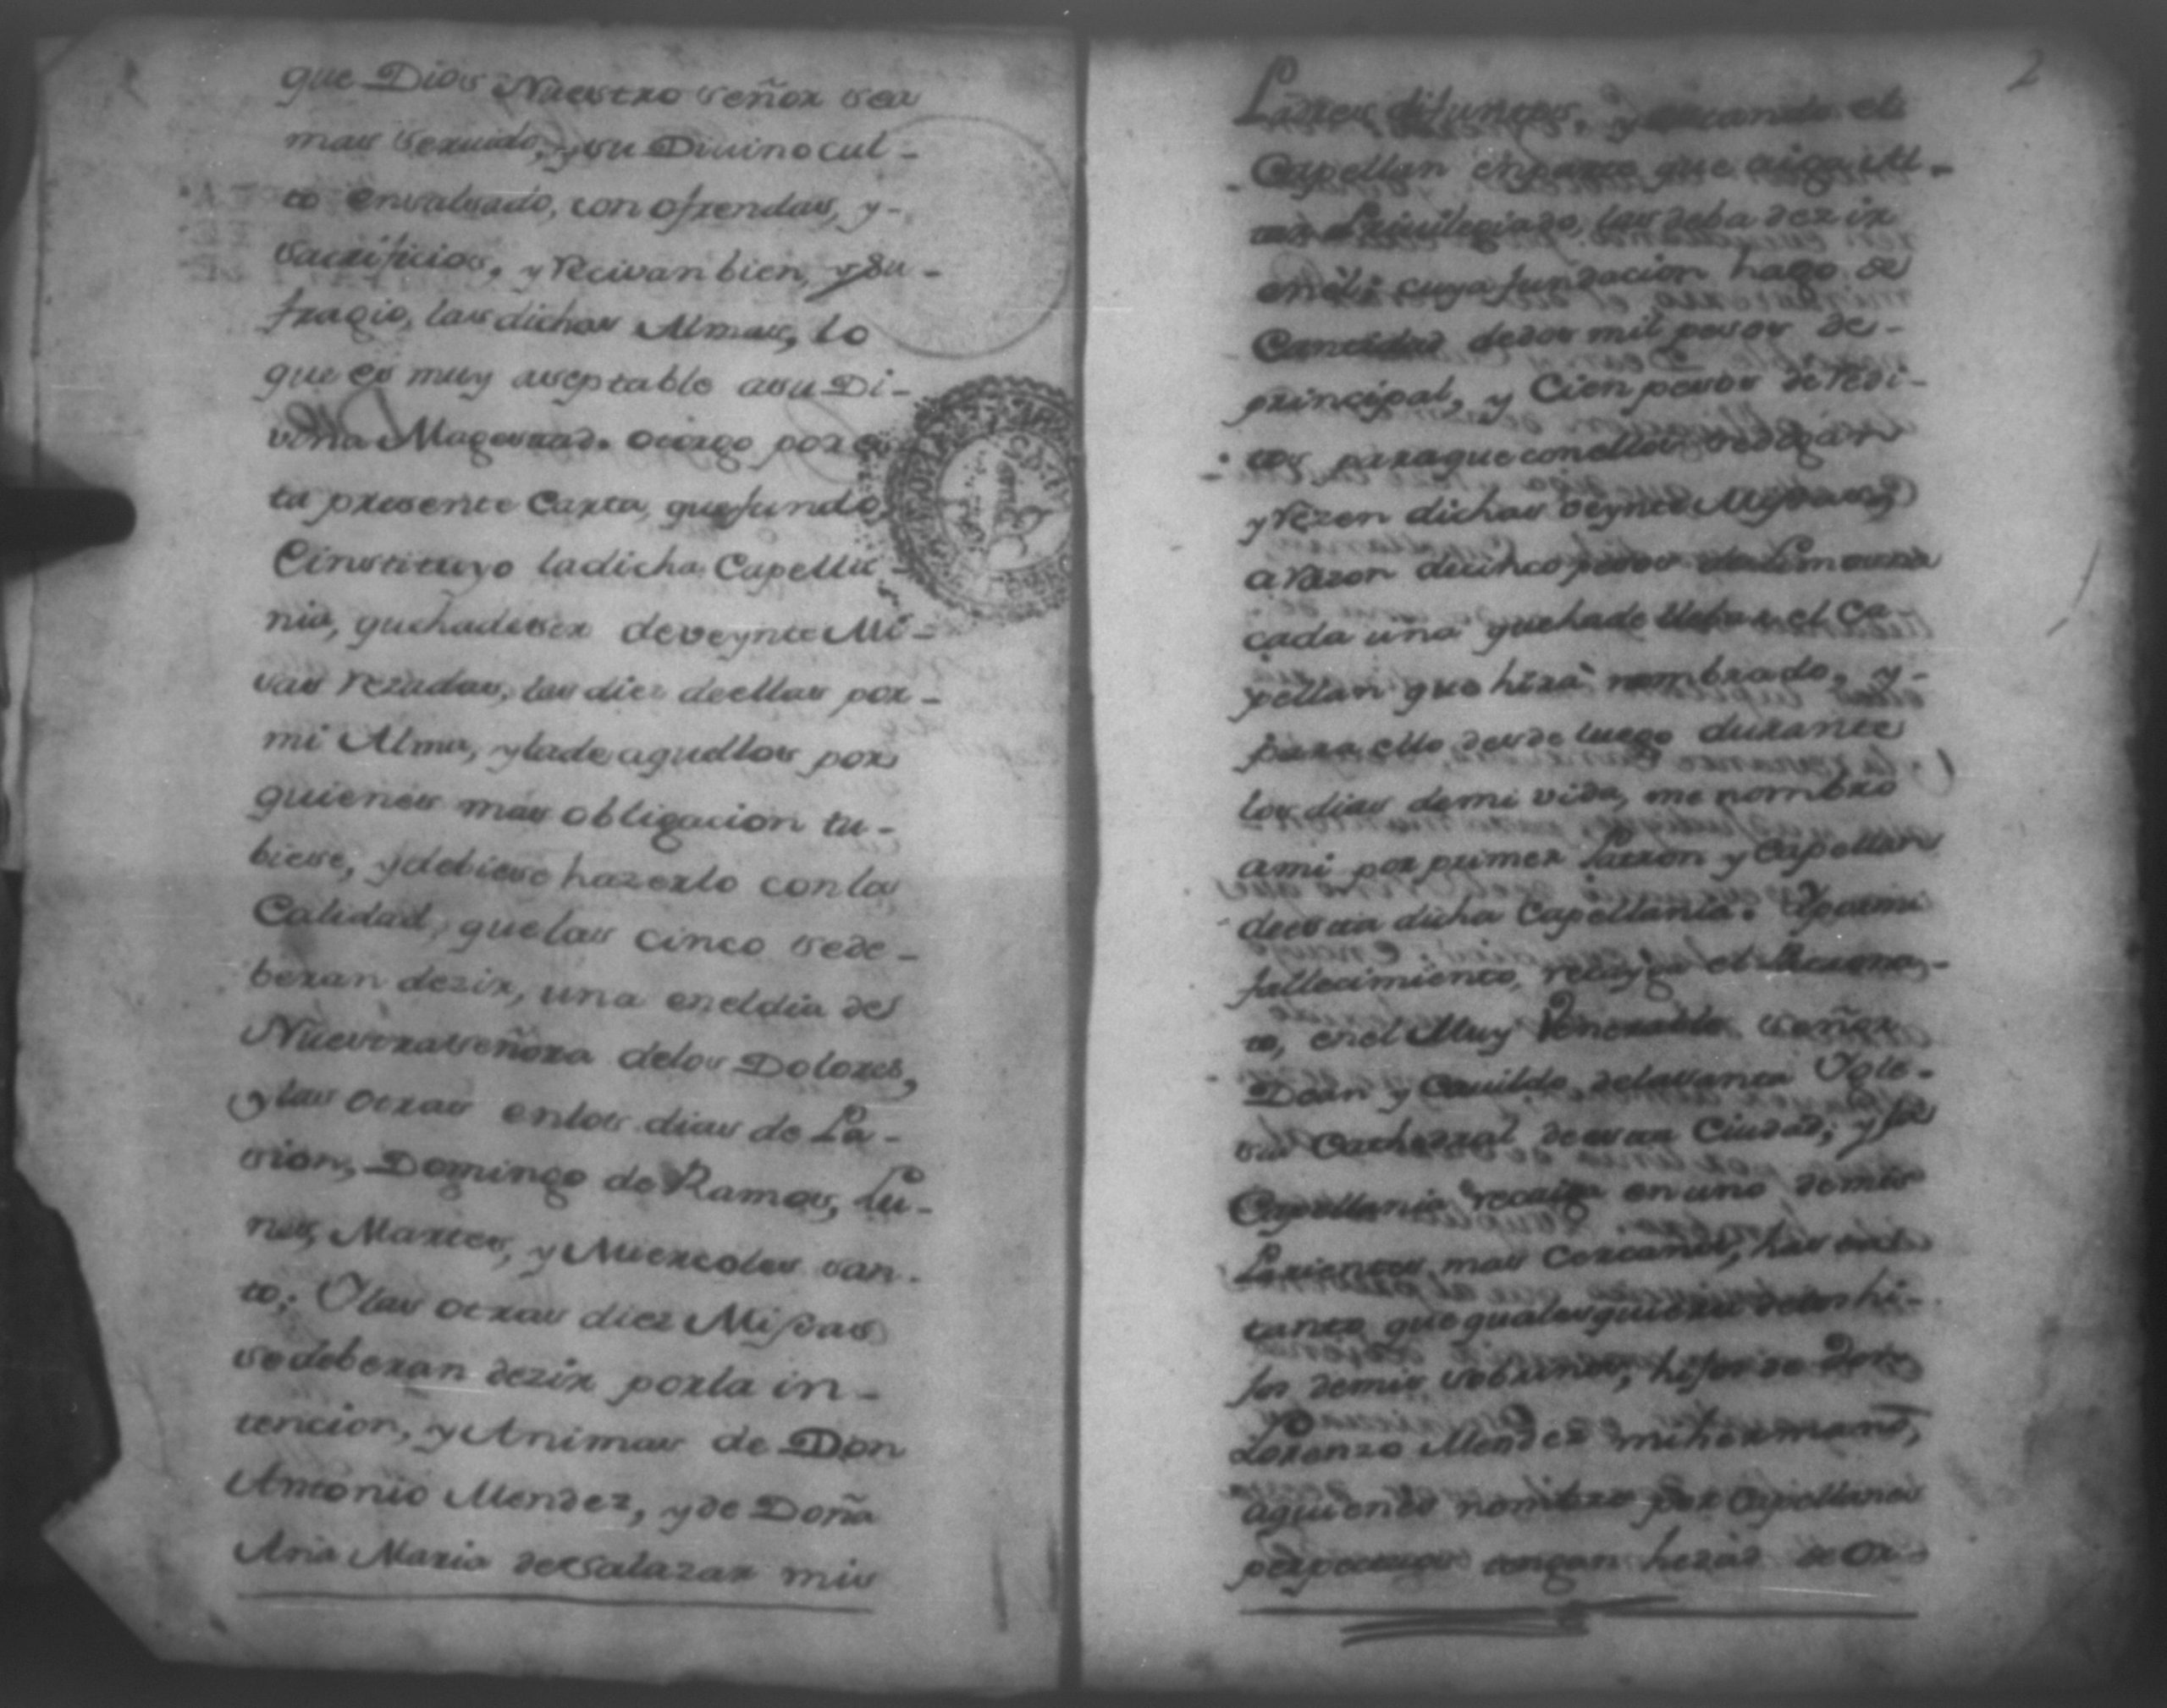 que Dios Nuestro señor sea
mas seruido, y su Diuino cul-
to ensalsado, con ofrendas, y-
sacrificios, y recivan bien, y su-
fragio, las dichas Almas, lo
que es muy aseptable asu Di-
vina Magestad. otorgo por es
ta presente Carta, que fundo,
Einstituyo ladicha Capella-
nia, quehadeser deveynte Mi-
sas rezadas, las diez deellas por-
mi Alma, ylade aquellos por
quienes mas obligacion tu-
biese, ydebiese hazerlo con la
Calidad, quelas cinco sede-
beran dezir, una eneldia de
Nuestraseñora delos Dolores,
ylas otras enlos dias de Pa-
sion, Domingo de Ramos, Lu-
nes, Martes, y Miercoles san-
to; Ylas otras diez Missas
sedeberan dezir porla in-
tencion, y Animas de Don
Antonio Mendez, yde Doña
Ana Maria deSalazar mis
2
Padres difuntos, y el
Capellan enparte que aiga Al-
tar Priuilegiado, las deba dezir
enèl; cuya fundacion hago de
Cantidad dedos mil pesos de-
principal, y Cien pesos de redi-
tos paraque conellos sedigan
y rezen dichas veynte Missas
a razon decinco pesos de Limosna
cada una quehade llebar el Ca-
pellan que hirà nombrado, y-
para ello desde luego durante
los dias demi vida, me nombro
ami por primer Patron y Capellan
deesta dicha Capellania. Ypormi
fallecimiento, recayga el Patrona-
to, enel Muy Venerable señor
Dean y Cauildo, delasanta Ygle-
sia Cathedral deesta Ciudad; y la
Capellania recaiga en uno demis
Parientes mas Cercanos,
tanto que qualesquiera delos hi-
jos demis sobrinos, hijos de Don
Lorenzo Mendez mihermano,
aquienes nombro por Capellanes
perpetuos tengan hedad de Or-